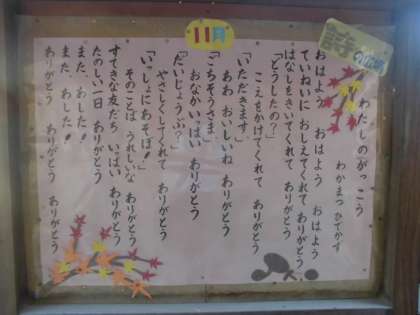 詩の広場
11月
わたしのがっこう
わかまつ ひでかず
おはよう おはよう おはよう
ていねいに おしえてくれて ありがとう
はなしをきいてくれて ありがとう
「どうしたの？」
こえをかけてくれて ありがとう
「いただきます。」
ああ おいしいね ありがとう
「ごちそうさま。」
おなか いっぱい ありがとう
「だいじょうぶ？」
やさしくしてくれて ありがとう
「いっしょにあそぼ！」
そのことば うれしいな ありがとう
すてきな友だち いっぱい ありがとう
たのしい一日 ありがとう ありがとう
また、あした！
また、あした！
ありがとう ありがとう ありがとう